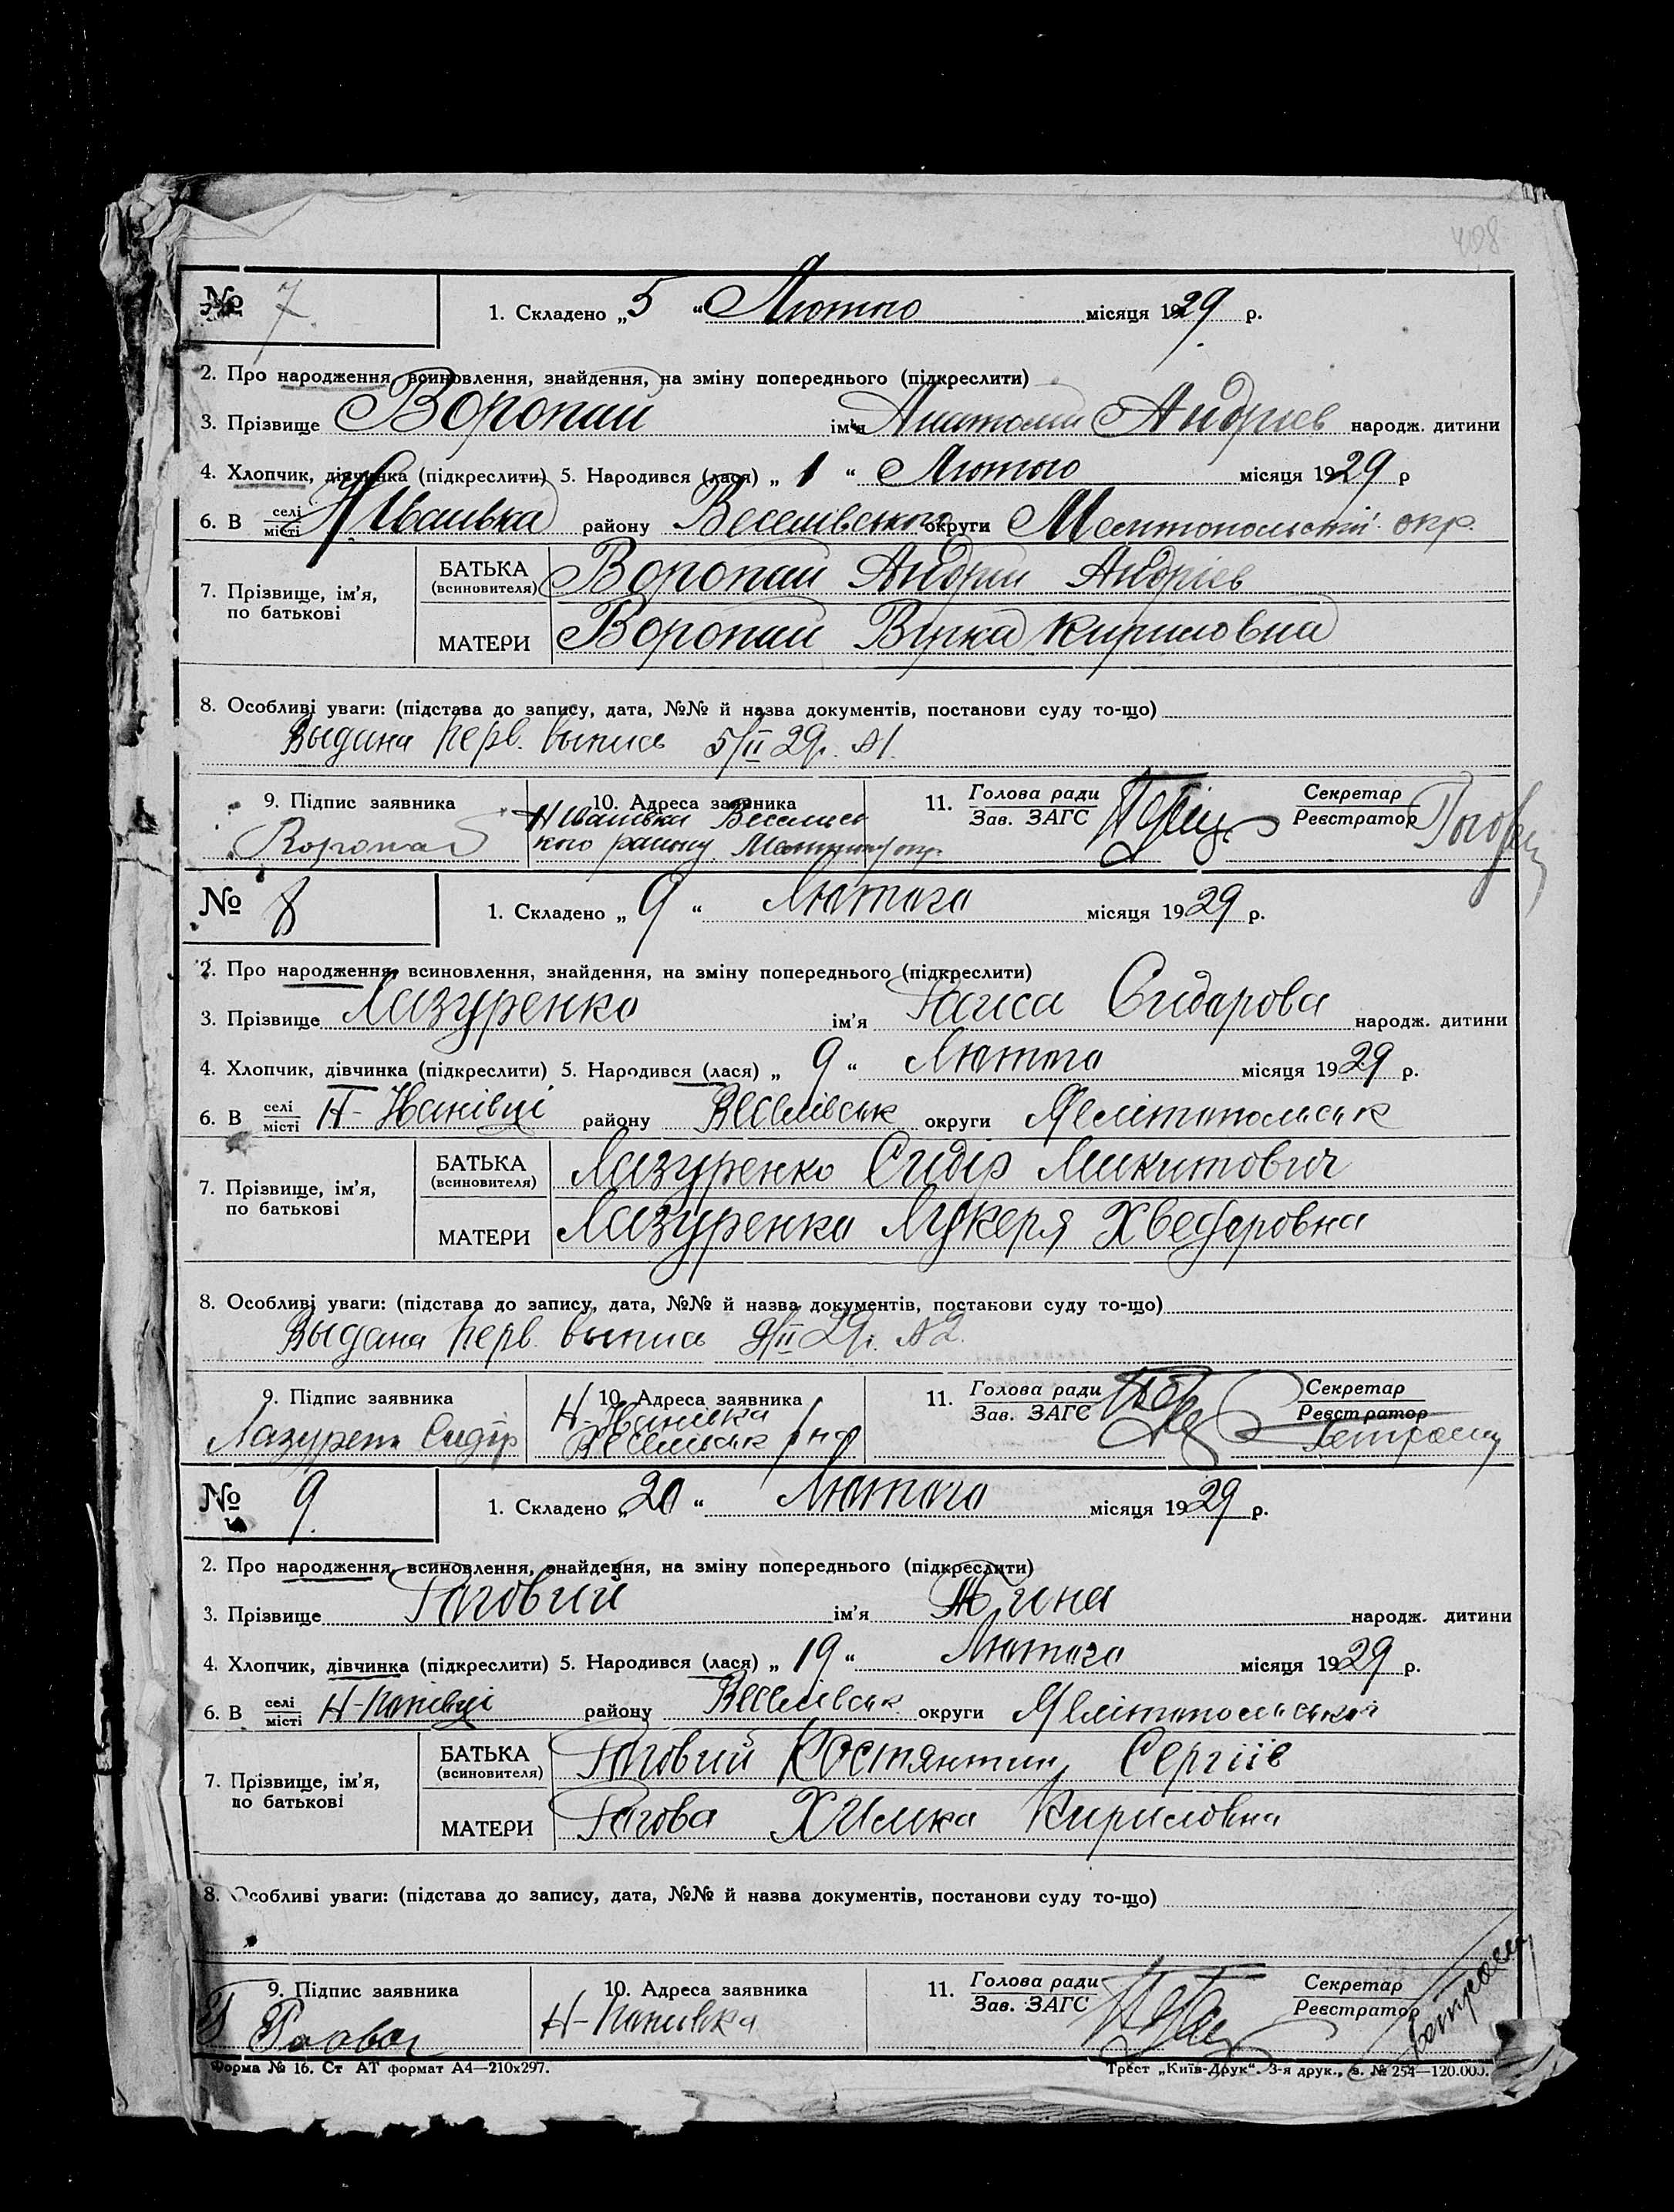 408
№ 7
1. Складено „5“ Лютого місяця 1929 р.
2. Про народження, всиновлення, знайдення, на зміну попереднього (підкреслити)
3. Прізвище Воропай ім'я Анатолий Андріев народж. дитини
4. Хлопчик, дівчинка (підкреслити) 5. Народився (лася) „1“ Лютого місяця 1929 р
6. В селі місті Н Іванівка району Веселівського округи Мелитопольскій окр.
7. Прізвище, ім'я, по батькові
БАТЬКА (всиновителя) Воропай Андрий Андріев
МАТЕРИ Воропай Вірка Кириловна
8. Особливі уваги: (підстава до запису, дата, №№ й назва документів, постанови суду то-що)
Выдана перв. выпись 5/II 29г. №1.
9. Підпис заявника 10. Адреса заявника 11. Голова ради Зав. ЗАГС Секретар Реєстратор
Воропай Н Іванівка Веселівського району
№ 8
1. Складено „9“ Лютого місяця 1929 р.
2. Про народження, всиновлення, знайдення, на зміну попереднього (підкреслити)
3. Прізвище Лазуренко ім'я Раиса Сидорова народж. дитини
4. Хлопчик, дівчинка (підкреслити) 5. Народився (лася) „9“ Лютого місяця 1929 р.
6. В селі місті Н-Іванівці району Веселівськ округи Мелітопольськ
7. Прізвище, ім'я, по батькові
БАТЬКА (всиновителя) Лазуренко Сидір Микитович
МАТЕРИ Лазуренко Лукеря Хведоровна
8. Особливі уваги: (підстава до запису, дата, №№ й назва документів, постанови суду то-що)
Выдана перв. выпись 9/II 29г. №2.
9. Підпис заявника 10. Адреса заявника 11. Голова ради Зав. ЗАГС Секретар Реєстратор
Лазурен Сидір Н-Іванівка Веселівськ
№ 9.
1. Складено „20“ Лютого місяця 1929 р.
2. Про народження, всиновлення, знайдення, на зміну попереднього (підкреслити)
3. Прізвище Роговий ім'я народж. дитини
4. Хлопчик, дівчинка (підкреслити) 5. Народився (лася) „19“ Лютого місяця 1929 р.
6. В селі місті району Веселівськ округи Мелітопольськой
7. Прізвище, ім'я, по батькові
БАТЬКА (всиновителя) Роговий Костянтин Сергіїв
МАТЕРИ Рогова Химка Кириловна
8. Особливі уваги: (підстава до запису, дата, №№ й назва документів, постанови суду то-що)
9. Підпис заявника 10. Адреса заявника 11. Голова ради Зав. ЗАГС Секретар Реєстратор
Форма № 16. Ст АТ формат А4—210х297. Трест „Київ-Друк“. 3-я друк., з. № 254—120.000.